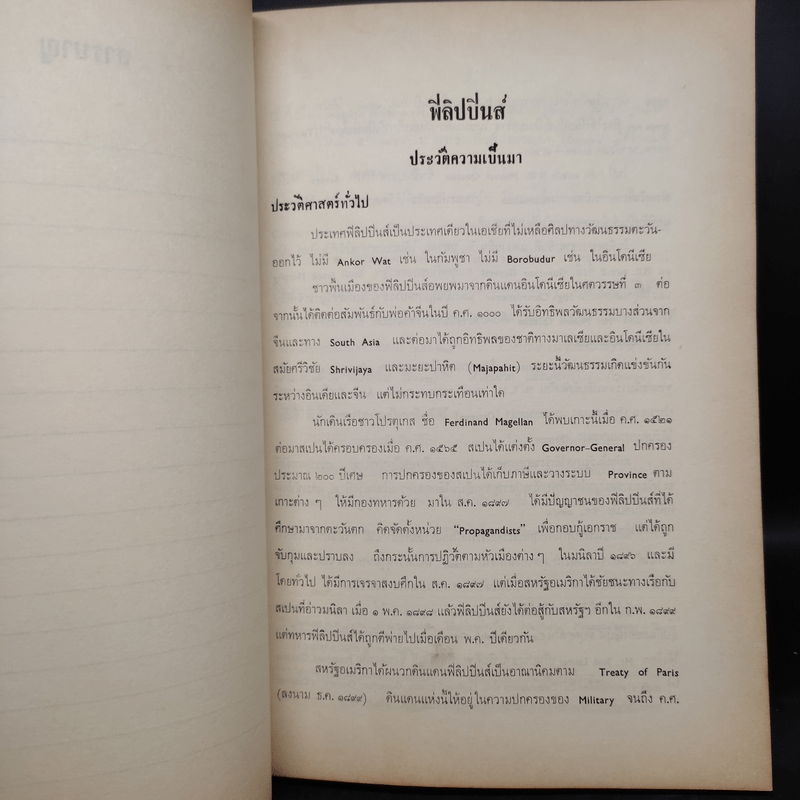 สารบาญ
ฟิลิปปินส์
ประวัติความเป็นมา
ประวัติศาสตร์ทั่วไป
ประเทศฟิลิปปินส์เป็นประเทศเดียวในเอเชียที่ไม่เหลือศิลปทางวัฒนธรรมตะวัน-
ออกไว้ ไม่มี Ankor Wat เช่น ในกัมพูชา ไม่มี Borobudur เช่น ในอินโดนีเซีย
ชาวพื้นเมืองของฟิลิปปินส์อพยพมาจากดินแดนอินโดนีเซียในศตวรรษที่ ๓ ต่อ
จากนั้นได้ติดต่อสัมพันธ์กับพ่อค้าจีนในปี ค.ศ. ๑๐๐๐ ได้รับอิทธิพลวัฒนธรรมบางส่วนจาก
จีนและทาง South Asia และต่อมาได้ถูกอิทธิพลของชาติทางมาเลเซียและอินโดนีเซียใน
สมัยศรีวิชัย Shrivijaya และมะยะปาหิต (Majapahit) ระยะนี้วัฒนธรรมเกิดแข่งขันกัน
ระหว่างอินเดียและจีน แต่ไม่กระทบกระเทือนเท่าใด
นักเดินเรือชาวโปรตุเกส ชื่อ Ferdinand Magellan ได้พบเกาะนี้เมื่อ ค.ศ. ๑๕๒๑
ต่อมาสเปนได้ครอบครองเมื่อ ค.ศ. ๑๕๖๕ สเปนได้แต่งตั้ง Governor-General ปกครอง
ประมาณ ๒๐๐ ปีเศษ การปกครองของสเปนได้เก็บภาษีและวางระบบ Province ตาม
เกาะต่าง ๆ ให้มีกองทหารด้วย มาใน ส.ค. ๑๘๙๗ ได้มีปัญญาชนของฟิลิปปินส์ที่ได้
ศึกษามาจากตะวันตก คิดจัดตั้งหน่วย “Propagandists” เพื่อกอบกู้เอกราช แต่ได้ถูก
จับกุมและปราบลง ถึงกระนั้นการปฏิวัติตามหัวเมืองต่าง ๆ ในมนิลาปี ๑๘๙๖ และมี
โดยทั่วไป ได้มีการเจรจาสงบศึกใน ส.ค. ๑๘๙๗ แต่เมื่อสหรัฐอเมริกาได้ชัยชนะทางเรือกับ
สเปนที่อ่าวมนิลา เมื่อ ๑ พ.ค. ๑๘๙๘ แล้วฟิลิปปินส์ยังได้ต่อสู้กับสหรัฐฯ อีกใน ก.พ. ๑๘๙๙
แต่ทหารฟิลิปปินส์ได้ถูกตีพ่ายไปเมื่อเดือน พ.ค. ปีเดียวกัน
สหรัฐอเมริกาได้ผนวกดินแดนฟิลิปปินส์เป็นอาณานิคมตาม Treaty of Paris
(ลงนาม ธ.ค. ๑๘๙๙) ดินแดนแห่งนี้ให้อยู่ในความปกครองของ Military จนถึง ค.ศ.